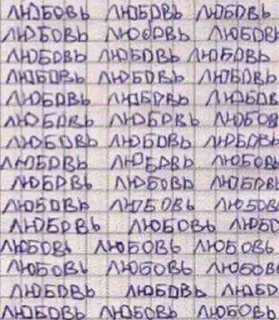 ЛЮБОВЬ ЛЮБОВЬ ЛЮБОВЬ
ЛЮБОВЬ ЛЮБОВЬ ЛЮБОВЬ
ЛЮБОВЬ ЛЮБОВЬ ЛЮБОВЬ
ЛЮБОВЬ ЛЮБОВЬ ЛЮБОВЬ
ЛЮБОВЬ ЛЮБОВЬ ЛЮБОВ
ЛЮБОВЬ ЛЮБОВЬ ЛЮБОВ
ЛЮБОВЬ ЛЮБОВЬ ЛЮБОВЬ
ЛЮБОВЬ ЛЮБОВЬ ЛЮБОВЬ
ЛЮБОВЬ ЛЮБОВЬ ЛЮБОВ
ЛЮБОВЬ ЛЮБОВЬ ЛЮБОВ
ЛЮБОВЬ ЛЮБОВЬ ЛЮБО
ЛЮБОВЬ ЛЮБОВЬ ЛЮБОВЬ
ЛЮБОВЬ ЛЮБОВЬ ЛЮБОВ
ЛЮБОВЬ ЛЮБОВЬ ЛЮБО
ЛЮБОВЬ ЛЮБОВЬ ЛЮБОВЬ